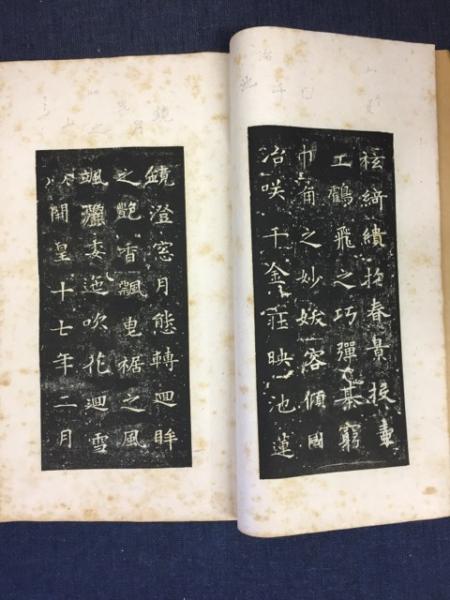 袨綺繢於春景投壺
工鶴飛之巧彈棊窮
巾角之妙妖容傾國
冶咲千金莊映池蓮
鏡澄窓月態轉迴眸
之艷香飄曳裾之風
颯灑委迤吹花迴雪
以開皇十七年二月